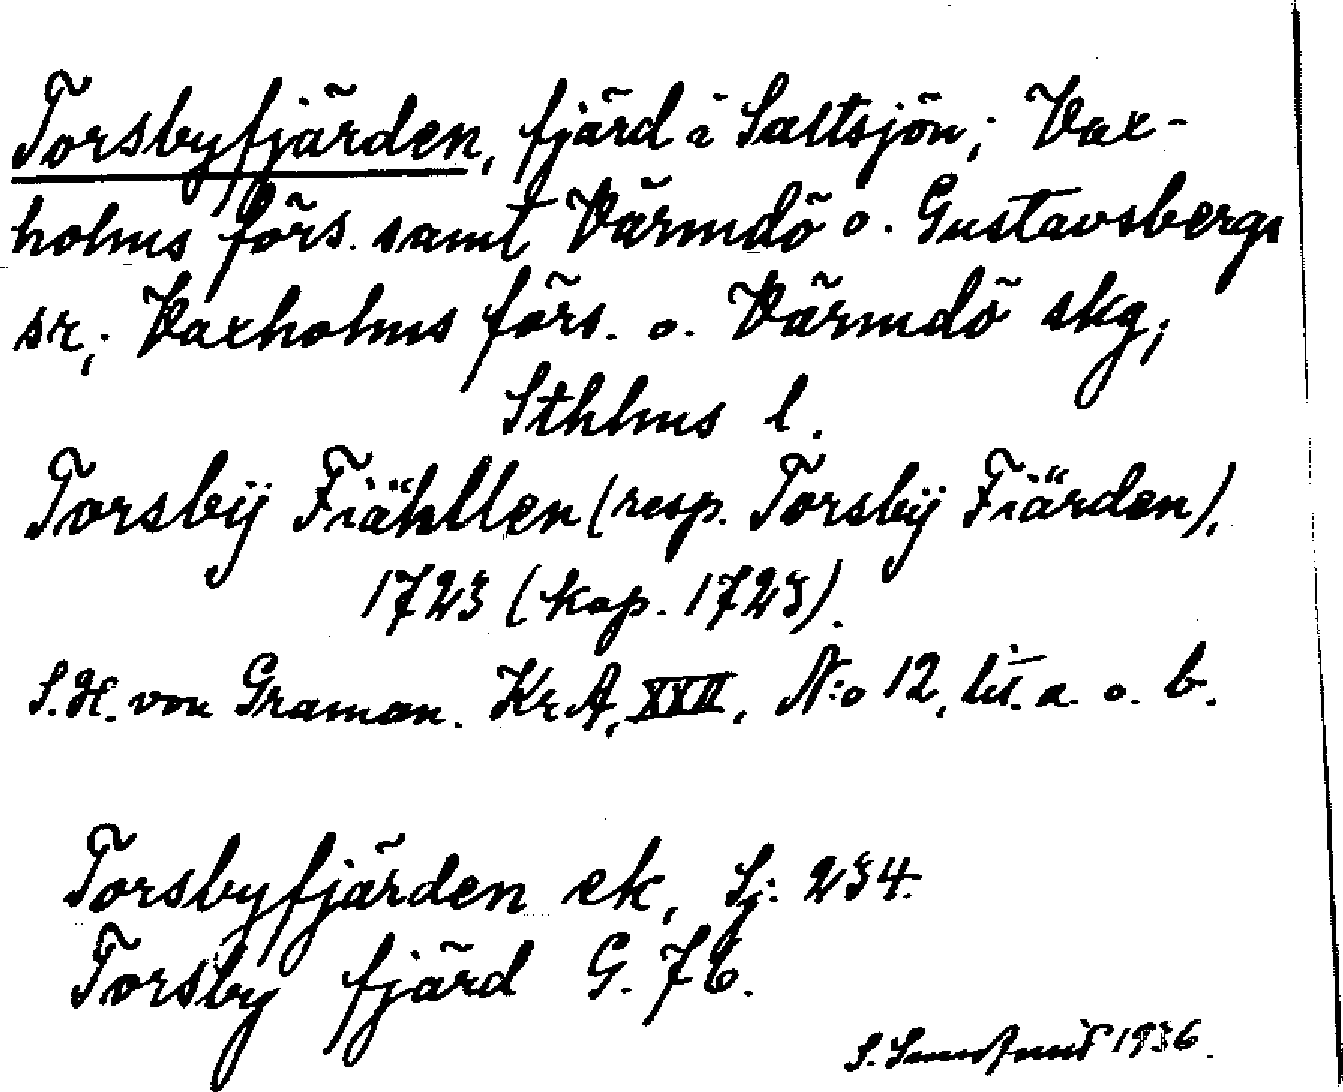 Torsbyfjärden, fjärd i Saltsjön; Vax-
holms förs. samt Värmdö o. Gustavsbergs
sr; Vaxholms förs. o. Värmdö skg;
Sthlms l.
Torsbÿ Fiähllen (resp. Torsbÿ Fiärden),
1723 (kop. 1723).
S.H. von Graman. KrA, XXII, N:o 12, lit. a. o. b.
Torsbyfjärden ek, Sj. 234.
Torsby fjärd G. 76.
S. 1936.